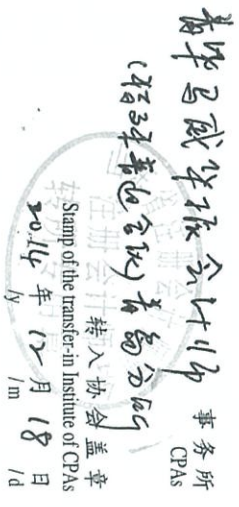 毕马威华振会计师 事务所
CPAs
(特殊普通合伙)青岛分所
转入协会盖章
Stamp of the transfer-in Institute of CPAs
2014 年 12 月 18 日
/y /m /d